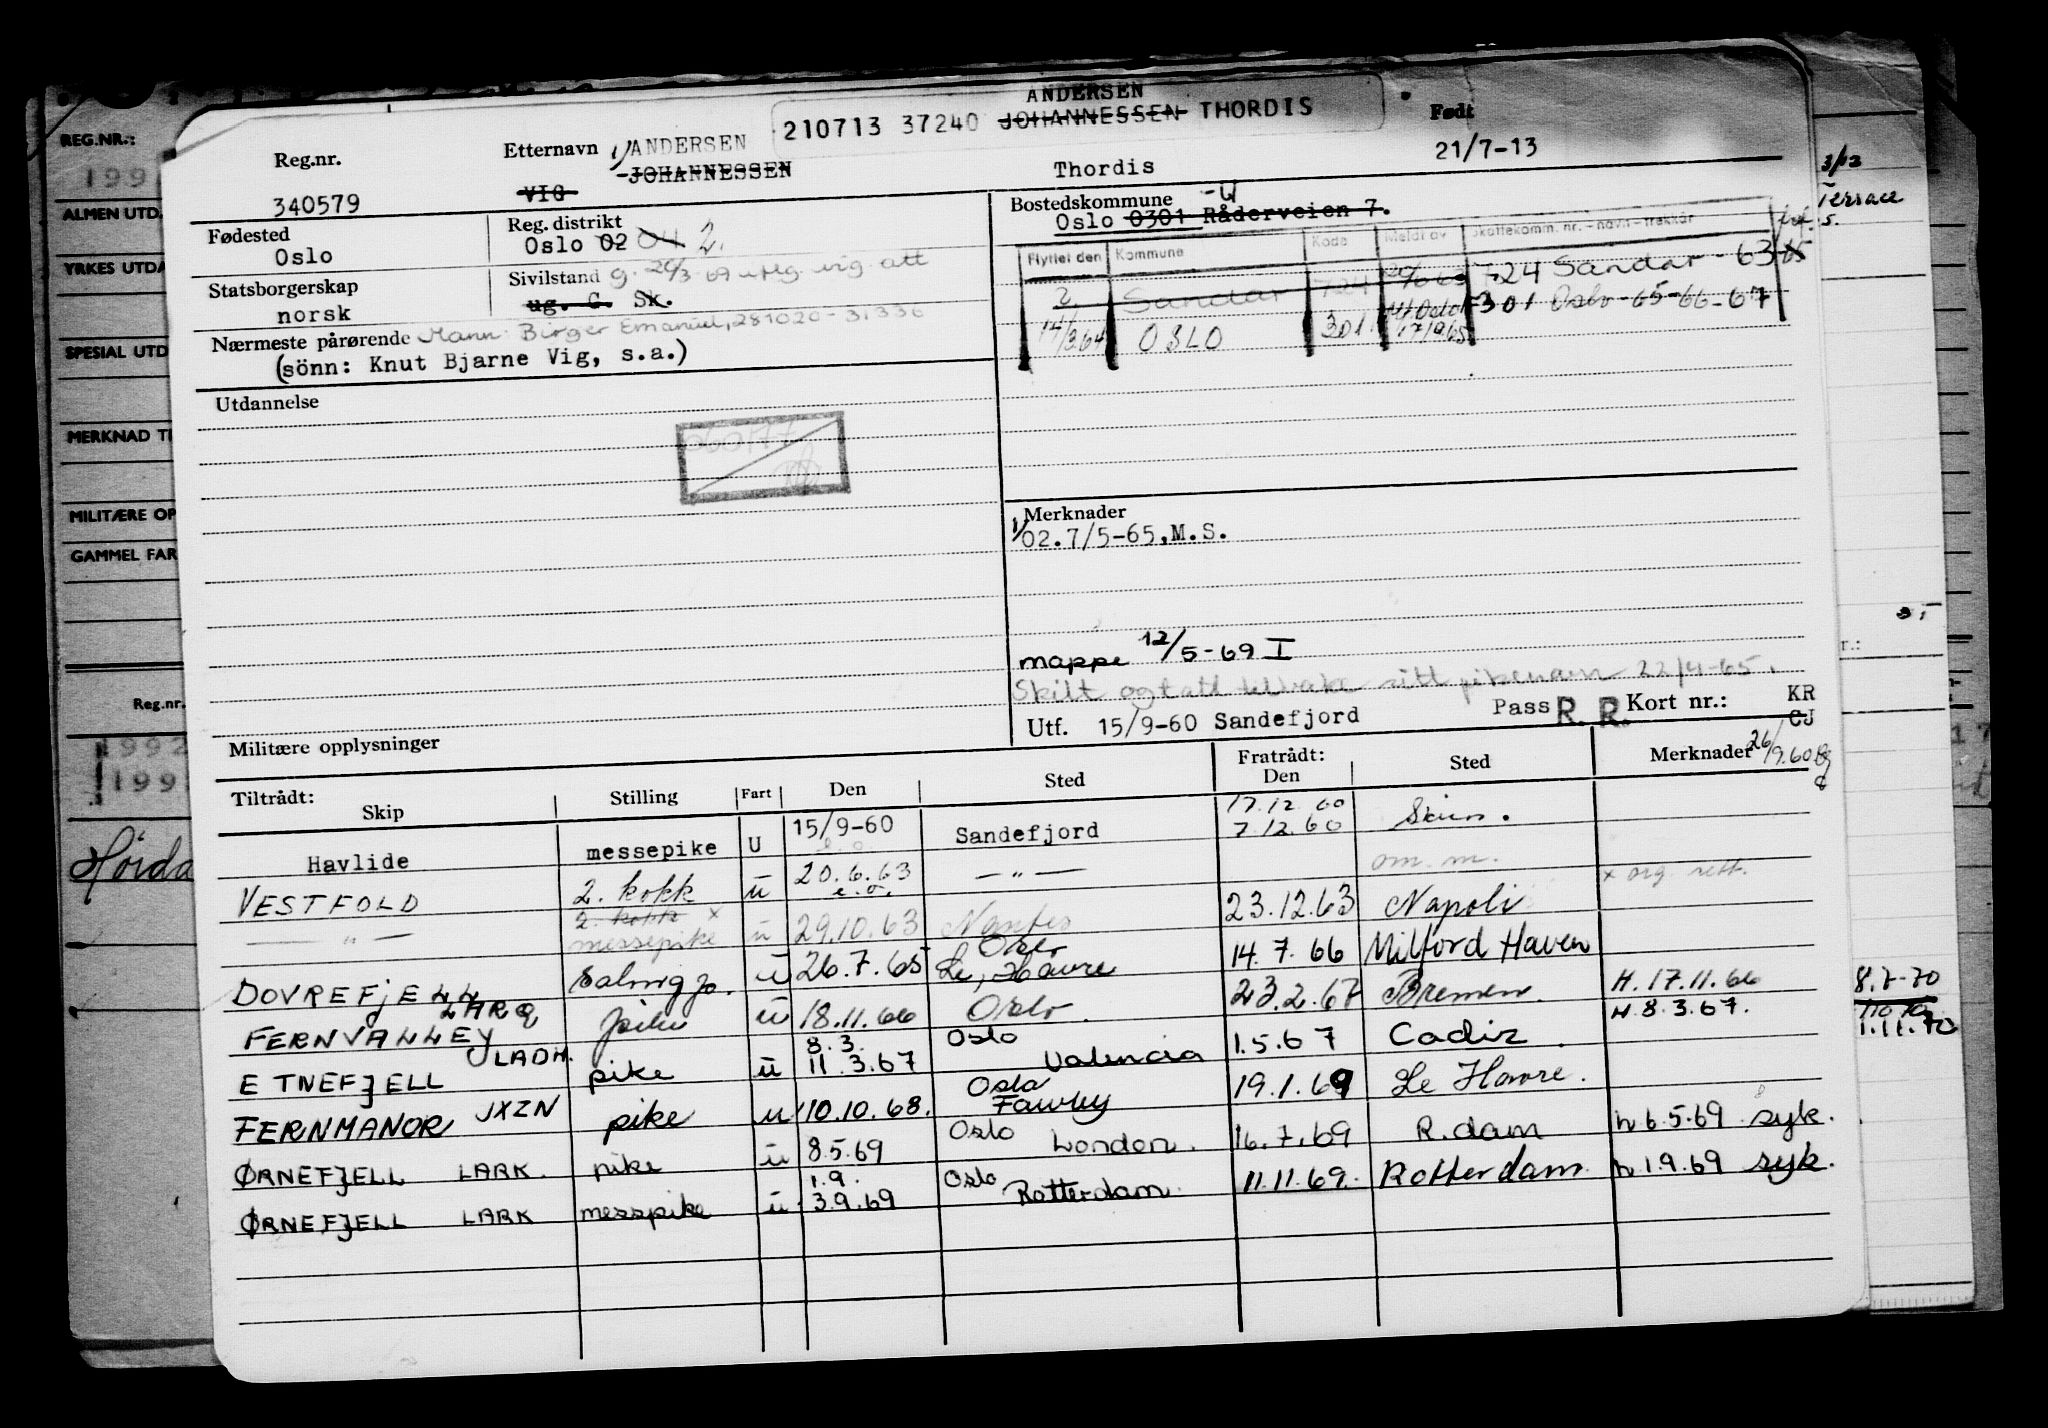 ANDERSEN
210713 37240 JOHANNESSEN THORDIS
Født
21/7-13
Reg.nr.
340579
Etternavn 1/ ANDERSEN
JOHANNESSEN
VIG
Thordis
REG.NR.:
199
ALMEN UTD.
YRKES UTDA
SPESIAL UTD
MERKNAD TI
MILITÆRE OP
GAMMEL FAR
Reg.nr.
1992
199
Høida
Fødested
Oslo
Reg. distrikt
Oslo 02 04 2.
Statsborgerskap
norsk
Sivilstand g. 26/3 69 utlg. vig. att
ug. G. Sk.
Nærmeste pårørende Mann: Birger Emanuel, 281020-31336
(sönn: Knut Bjarne Vig, s.a.)
Bostedskommune -U
Oslo 0301 Råderveien 7.
Flyttet den Kommune Kode Meldt av Skattekomm. nr. - navn - trekkår
2 Sandar 724 724 Sandar - 63
14/3 64 OSLO 301 17/9 65 301 Oslo - 65-66-67
Utdannelse
Merknader
1/02.7/5-65,M.S.
mappe 12/5-69 I
Skilt og tatt tilbake sitt pikenavn 22/4-65.
Utf. 15/9-60 Sandefjord Pass R. R. Kort nr.: KR
CJ
26/9.60
Militære opplysninger
Tiltrådt: Skip Stilling Fart Den Sted Fratrådt: Den Sted Merknader
Havlide messepike U 15/9-60 Sandefjord 17.12.60
7.12.60 Skien.
VESTFOLD 2. kokk u 20.6.63 — " — om. m. x org. rett.
— " — 2. kokk x messepike u 29.10.63 Nantes 23.12.63 Napoli
DOVREFJELL LARQ Salonggp. u 26.7.65 Oslo Le Havre 14.7.66 Milford Haven
FERNVALLEY pike u 18.11.66 Oslo 23.2.67 Bremen. H. 17.11.66
ETNEFJELL JLADH. pike u 8.3. 11.3.67 Oslo Valencia 1.5.67 Cadiz. H. 8.3.67.
FERNMANOR JXZN pike u 10.10.68. Oslo Fawley 19.1.69 Le Havre.
ØRNEFJELL LARK. pike u 8.5.69 Oslo London. 16.7.69 R.dam h 6.5.69 syk.
ØRNEFJELL LARK messpike u 1.9. 3.9.69 Oslo Rotterdam. 11.11.69. Rotterdam h. 1.9.69 syk.
3/12
Terrace
5.
r.:
17
8.7-70
1.11.70